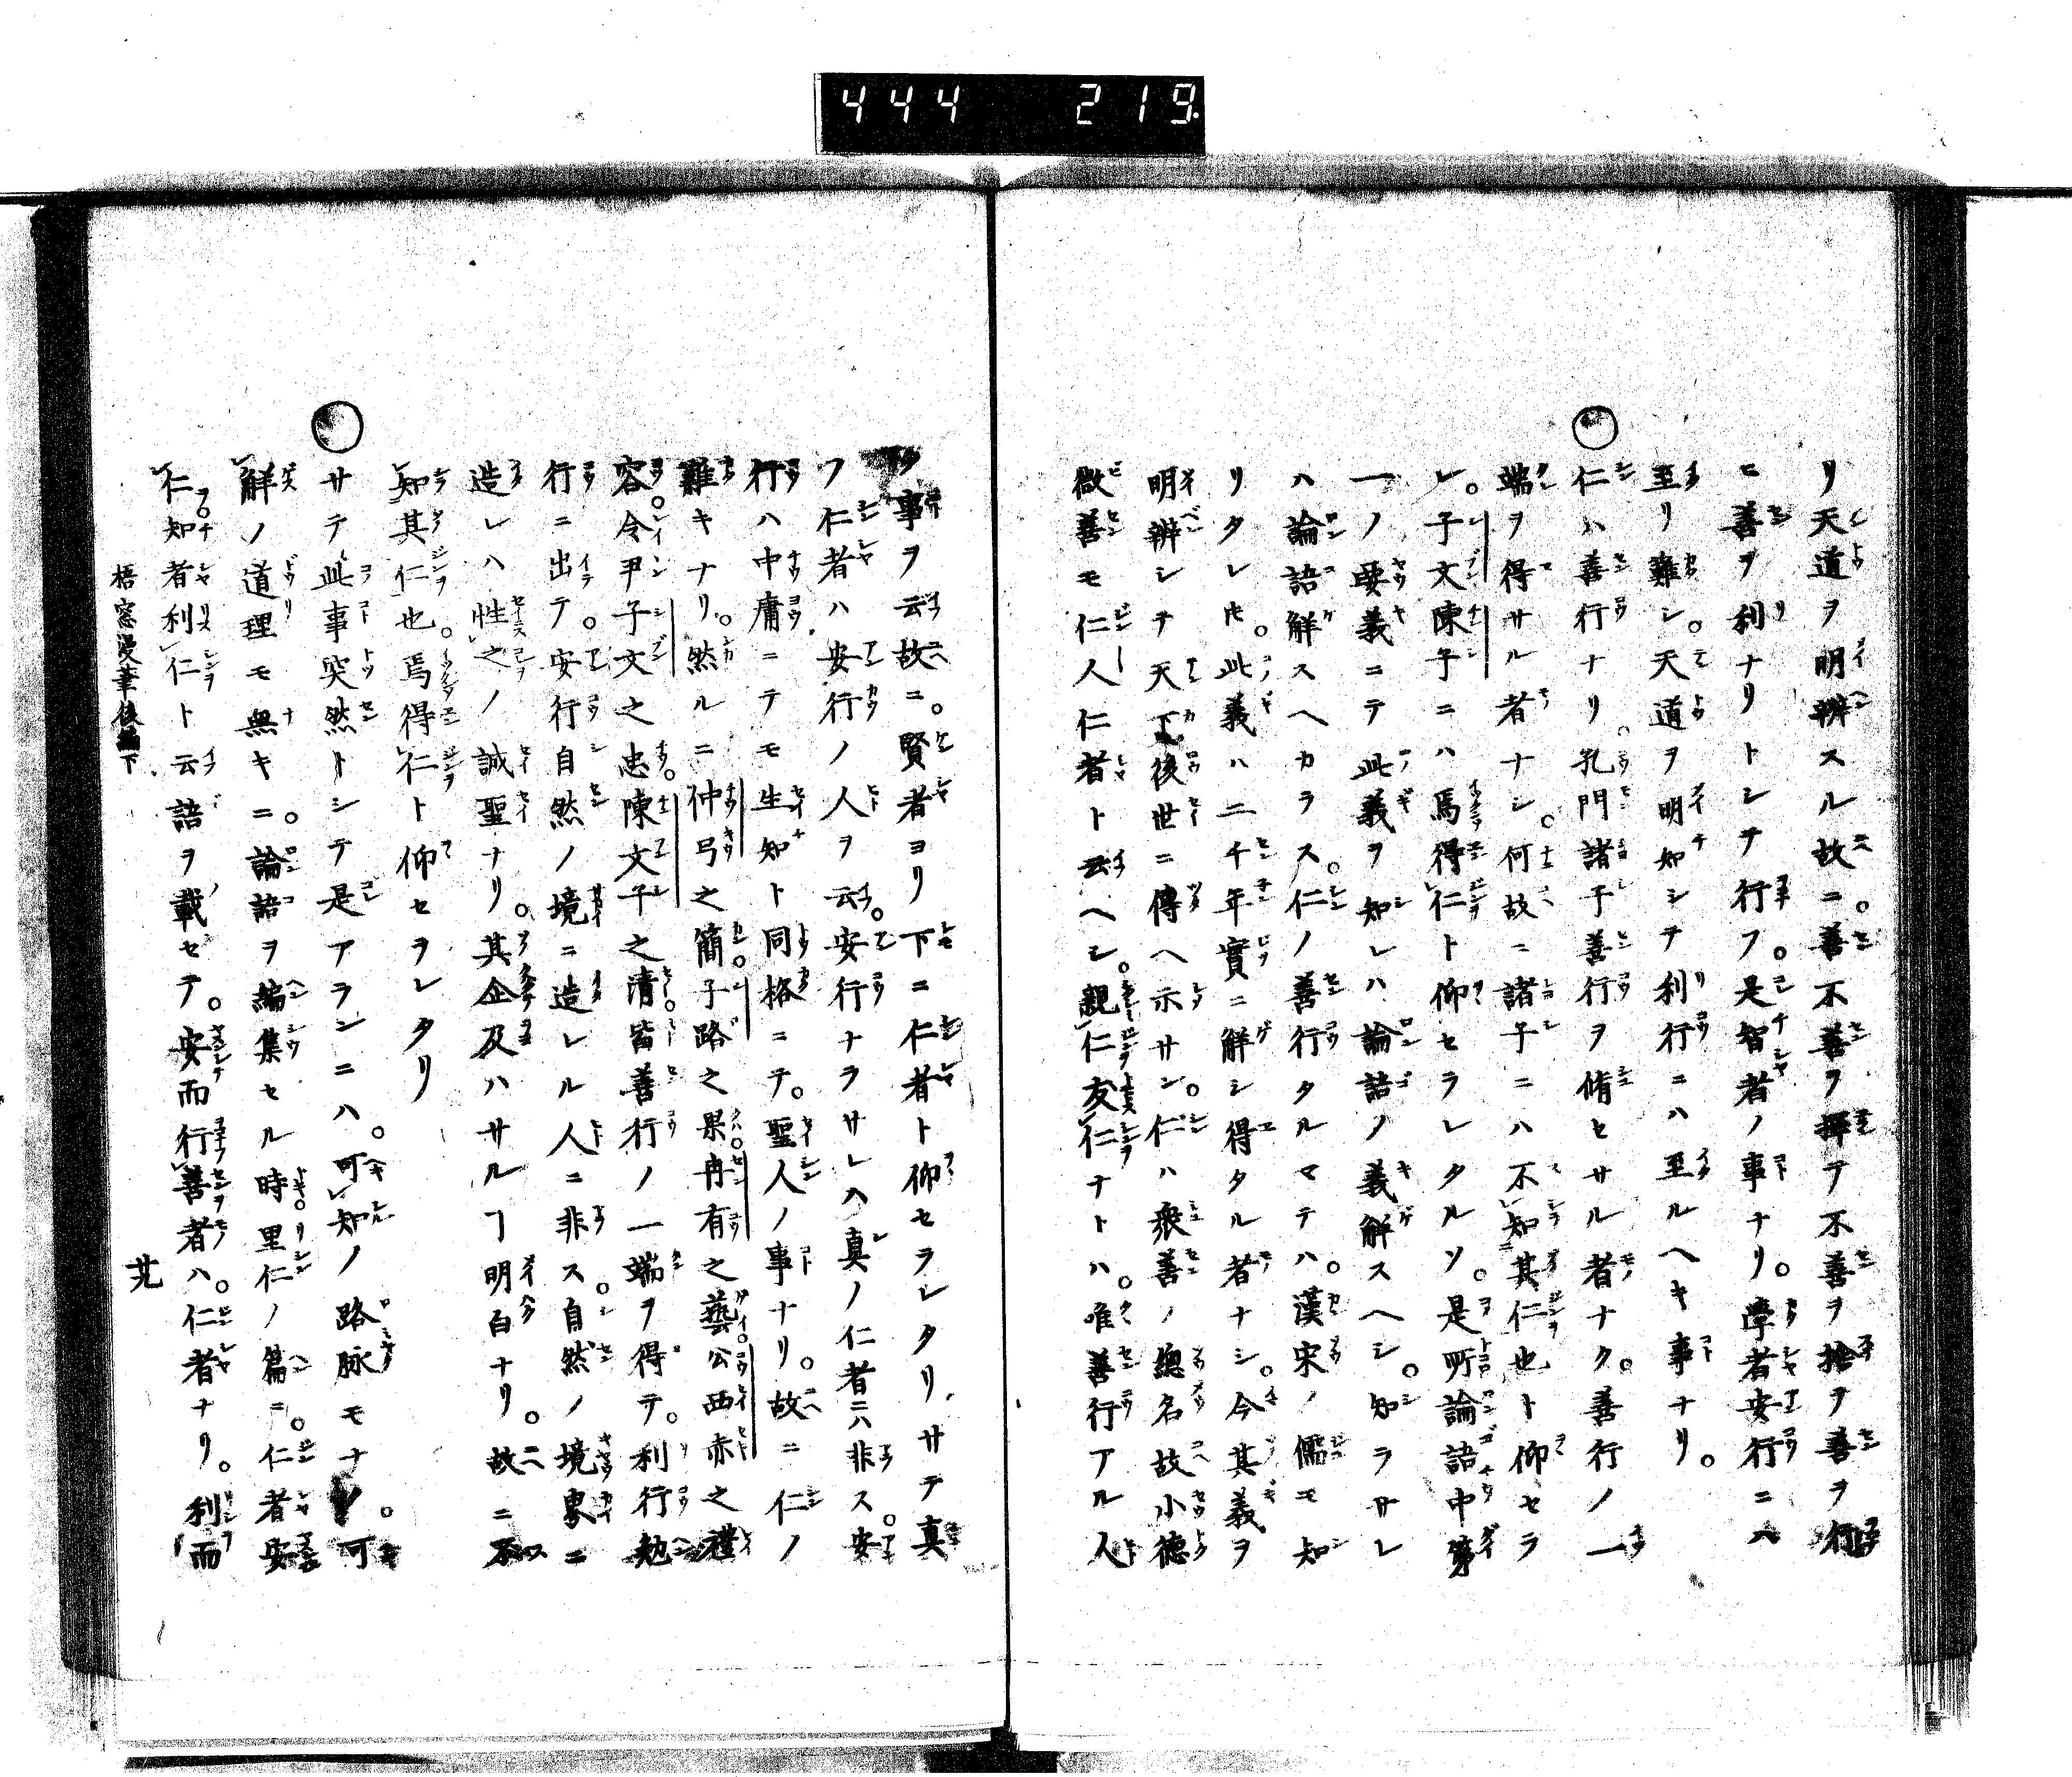 444 219.
リ天道ヲ明辨スル故ニ。善不善ヲ擇テ不善ヲ捨ヲ善ヲ行
ヒ善ヲ利ナリトシテ行フ。是智者ノ事ナリ。學者安行ニハ
至リ難シ。天道ヲ明知シテ利行ニハ至ルヘキ事ナリ。
○仁ハ善行ナリ。孔門諸子善行ヲ脩セサル者ナク。善行ノ一
端ヲ得サル者ナシ。何故ニ諸子ニハ不知其仁也ト仰セラ
レ。子文陳子ニハ焉得仁ト仰セラレタルソ。是所論語中第
一ノ要義ニテ此義ヲ知レハ論語ノ義解スヘシ。知ラサレ
ハ論語解スヘカラス。仁ノ善行タルマテハ。漢宋ノ儒モ知
リタレ𪜈。此義ハ二千年實ニ解シ得タル者ナシ。今其義ヲ
明辨シテ天下後世ニ傳ヘ示サン。仁ハ衆善ノ總名故小德
微善モ仁人仁者ト云ヘシ。親仁友仁ナトハ。唯善行アル人
ノ事ヲ云故ニ。賢者ヨリ下ニ仁者ト仰セラレタリサテ真
ノ仁者ハ安行ノ人ヲ云。安行ナラサレハ真ノ仁者ニハ非ス。安
行ハ中庸ニテモ生知ト同格ニテ。聖人ノ事ナリ。故ニ仁ノ
難キナリ。然ルニ仲弓之簡。子路之果。冉有之藝。公西赤之禮
容。令尹子文之忠。陳文子之清。皆善行ノ一端ヲ得テ。利行勉
行ニ出テ。安行自然ノ境ニ造レル人ニ非ス。自然ノ境界ニ
造レハ性之ノ誠聖ナリ。其企及ハサルヿ明白ナリ。故ニ不
知其仁也。焉得仁ト仰セラレタリ
○サテ此事突然トシテ是アランニハ。可知ノ路脉モナシ。可
解ノ道理モ無キニ。論語ヲ編集セル時。里仁ノ篇ニ。仁者安
仁。知者利仁ト云語ヲ載セテ。安而行善者ハ。仁者ナリ。利而
梧窓漫筆後編下
廿九